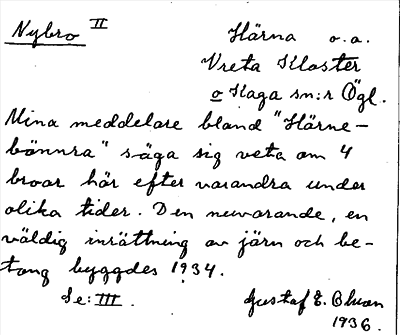 Nybro II
Härna o.a.
Vreta Kloster
o Kaga sn:r Ögl.
Mina meddelare bland "Härne-
bönnra" säga sig veta om 4
broar här efter varandra under
olika tider. Den nuvarande, en
väldig inrättning av järn och be-
tong byggdes 1934.
Se: III.
Gustaf E.
1936.